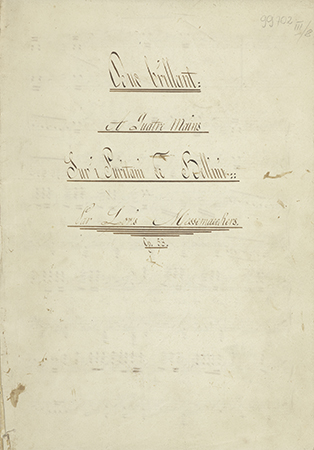 99702
III/2
Duo brillant:
A Quatre Mains
Sur i Puritani de Bellini
Par Louis Messemaeckers.
Op. 33.